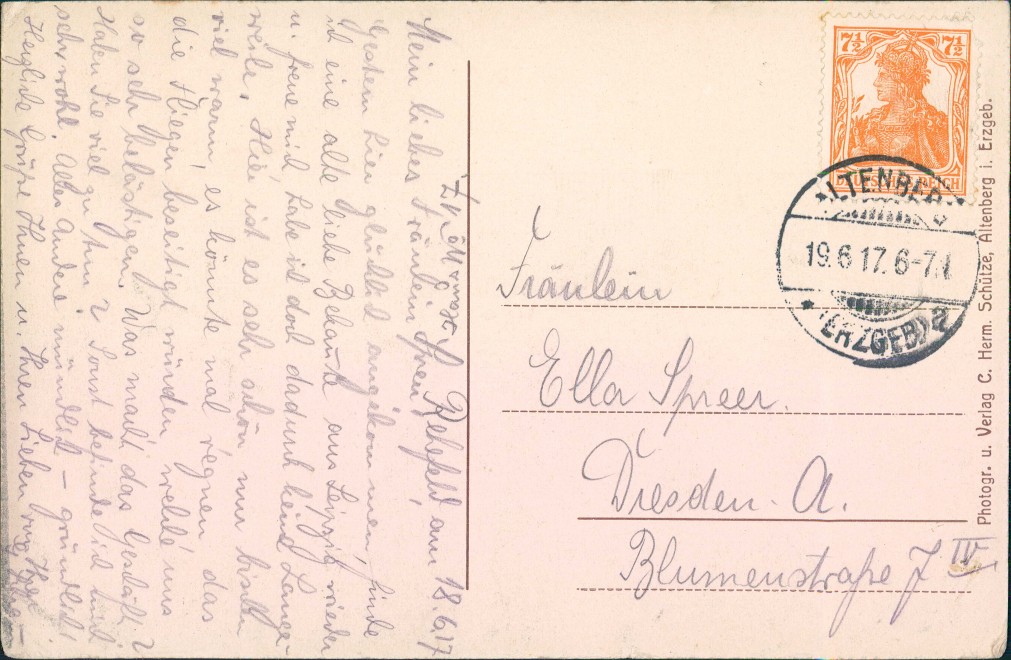 Rehefeld am 18.6.17
Mein liebes Fräulein Spreer!
Gestern hier glücklich angekommen, finde
ich eine alte liebe Bekannte aus Leipzig wieder
u. freue mich habe ich doch dadurch keine Lange-
weile. Hier ist es sehr schön nur bischen
viel warm, es könnte mal regnen das
die Fliegen beseitigt würden welche uns
so sehr belästigen. Was macht das Geschäft?
Haben Sie viel zu thun? Sonst befinde ich mich
sehr wohl. Alles Andere mündlich – gründlich!
Herzliche Grüße Ihnen u. Ihren Lieben
7½ 7½
DEUTSCHES REICH
ALTENBERG
19.6.17.6-7N.
* (ERZGEB.) a
Fräulein
Ella Spreer.
Dresden. A.
Blumenstraße 7 IV
Photogr. u. Verlag C. Herm. Schütze, Altenberg i. Erzgeb.